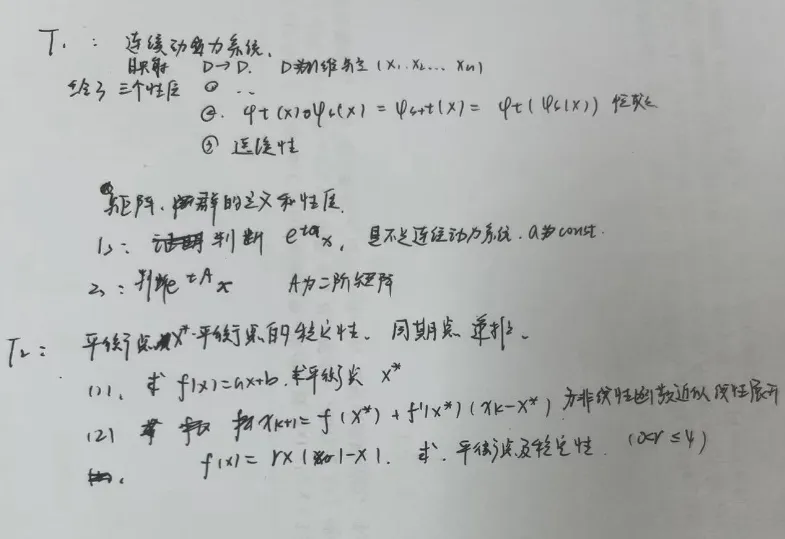 T₁: 连续动力系统.
映射 D→D. D为n维空间 (x₁.x₂... xₙ)
给了三个性质 ① ..
②. φt(x)∘φs(x) = φs+t(x) = φt(φs(x))
③ 连续性
矩阵. 群的定义和性质.
1>: 判断 e^{ta}x, 是不是连续动力系统. a为const.
2>: 判断e^{tA}x A为二阶矩阵
T₂: 平衡点x* 平衡点的稳定性. 周期点
(1). 求 f(x)=ax+b. 求平衡点 x*
(2) xk+1= f(x*) + f'(x*)(xk-x*) 为非线性函数近似线性展开
f(x)= rx(1-x). 求. 平衡点及稳定性. (0<r≤4)